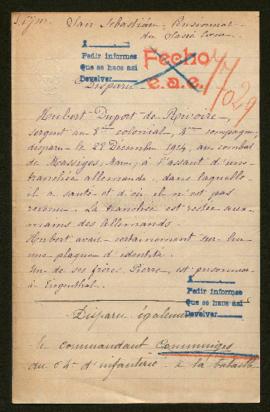 San Sebastián. Pensionnat
du Sacré Coeur
A
Pedir informes
Que se hace así
Devolver
Fecho
e.a.c.
Disparu
Hubert Dupot de
sergent au 8me colonial, 8me compagnie,
disparu le 22 Décembre 1914, au combat
de Massiges, Marne, à l'assaut d'une
tranchée allemande, dans laquelle
il a sauté et d'où il n'est pas
revenu. La tranchée est restée aux
mains des Allemands.
Hubert avait certainement sur lui
une plaque d'identité.
Un de ses frères, Pierre, est prisonnier
à
A
Pedir informes
Que se hace así
Devolver
Disparu également
le commandant
du 64e d'infanterie à la bataille